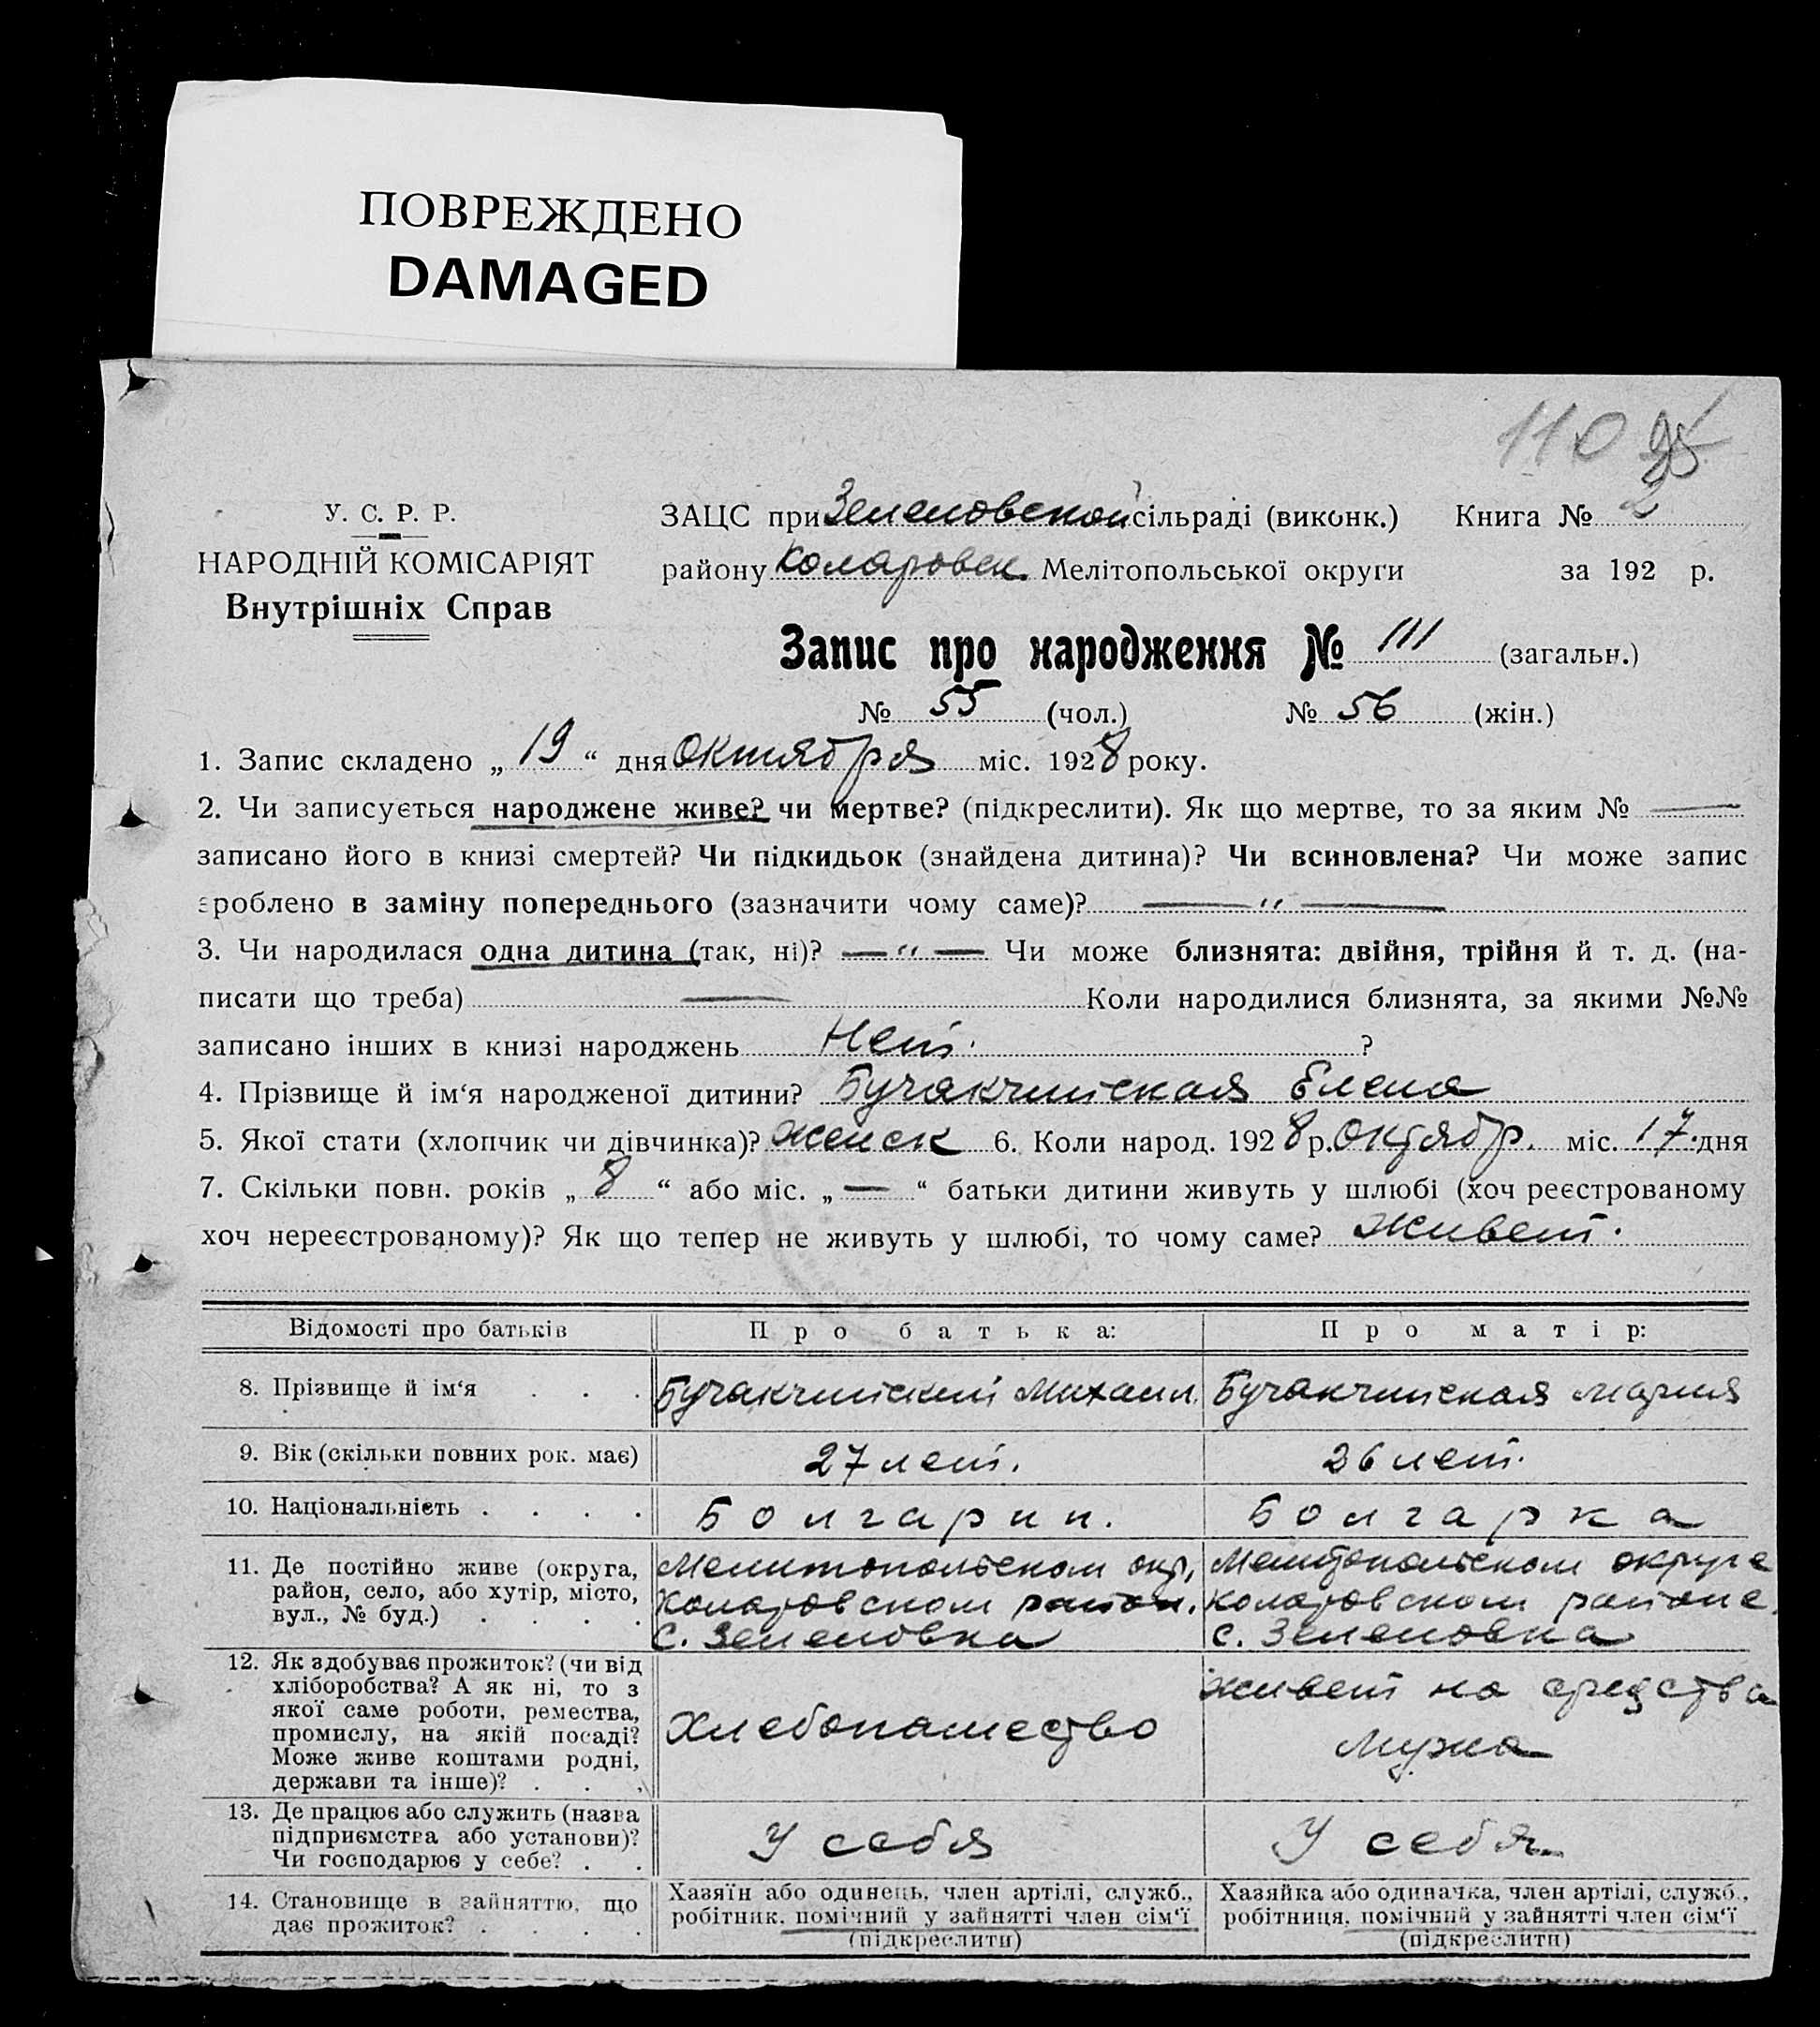 ПОВРЕЖДЕНО
DAMAGED
110 95
У. С. Р. Р.
НАРОДНІЙ КОМІСАРІЯТ
Внутрішніх Справ
ЗАЦС при Зеленовской сільраді (виконк.) Книга № 2
району Коларовск. Мелітопольської округи за 192 р.
Запис про народження № 111 (загальн.)
№ 55 (чол.) № 56 (жін.)
1. Запис складено „ 19 “ дня октября міс. 1928 року.
2. Чи записується народжене живе? чи мертве? (підкреслити). Як що мертве, то за яким № —
записано його в книзі смертей? Чи підкидьок (знайдена дитина)? Чи всиновлена? Чи може запис
зроблено в заміну попереднього (зазначити чому саме)? — „ —
3. Чи народилася одна дитина (так, ні)? — „ — Чи може близнята: двійня, трійня й т. д. (на-
писати що треба) — Коли народилися близнята, за якими №№
записано інших в книзі народжень Нет. ?
4. Прізвище й ім‘я народженої дитини? Бучакчийская Елена
5. Якої стати (хлопчик чи дівчинка)? женск 6. Коли народ. 1928 р. октябр. міс. 17. дня
7. Скільки повн. років „ 8 “ або міс. „ — “ батьки дитини живуть у шлюбі (хоч реєстрованому
хоч нереєстрованому)? Як що тепер не живуть у шлюбі, то чому саме? Живет.
Відомості про батьків
Про батька:
Про матір:
8. Прізвище й ім‘я . . .
Бучакчийский Михаил.
Бучакчийская Мария
9. Вік (скільки повних рок. має)
27 лет.
26 лет.
10. Національність . . . .
Болгарин.
Болгарка
11. Де постійно живе (округа,
район, село, або хутір, місто,
вул., № буд.) . . . .
Мелитопольском окр,
Коларовском район.
с. Зеленовка
Мелитопольском округе
Коларовском районе.
с. Зеленовка
12. Як здобуває прожиток? (чи від
хліборобства? А як ні, то з
якої саме роботи, ремества,
промислу, на якій посаді?
Може живе коштами родні,
держави та інше)? . . .
Хлебопашество
живет на средства
мужа
13. Де працює або служить (назва
підприємства або установи)?
Чи господарює у себе? . .
У себя
У себя
14. Становище в зайняттю, що
дає прожиток? . . . .
Хазяїн або одинець, член артілі, служб.,
робітник, помічний у зайнятті член сім‘ї
(підкреслити)
Хазяйка або одиначка, член артілі, служб.,
робітниця, помічний у зайнятті член сім‘ї
(підкреслити)